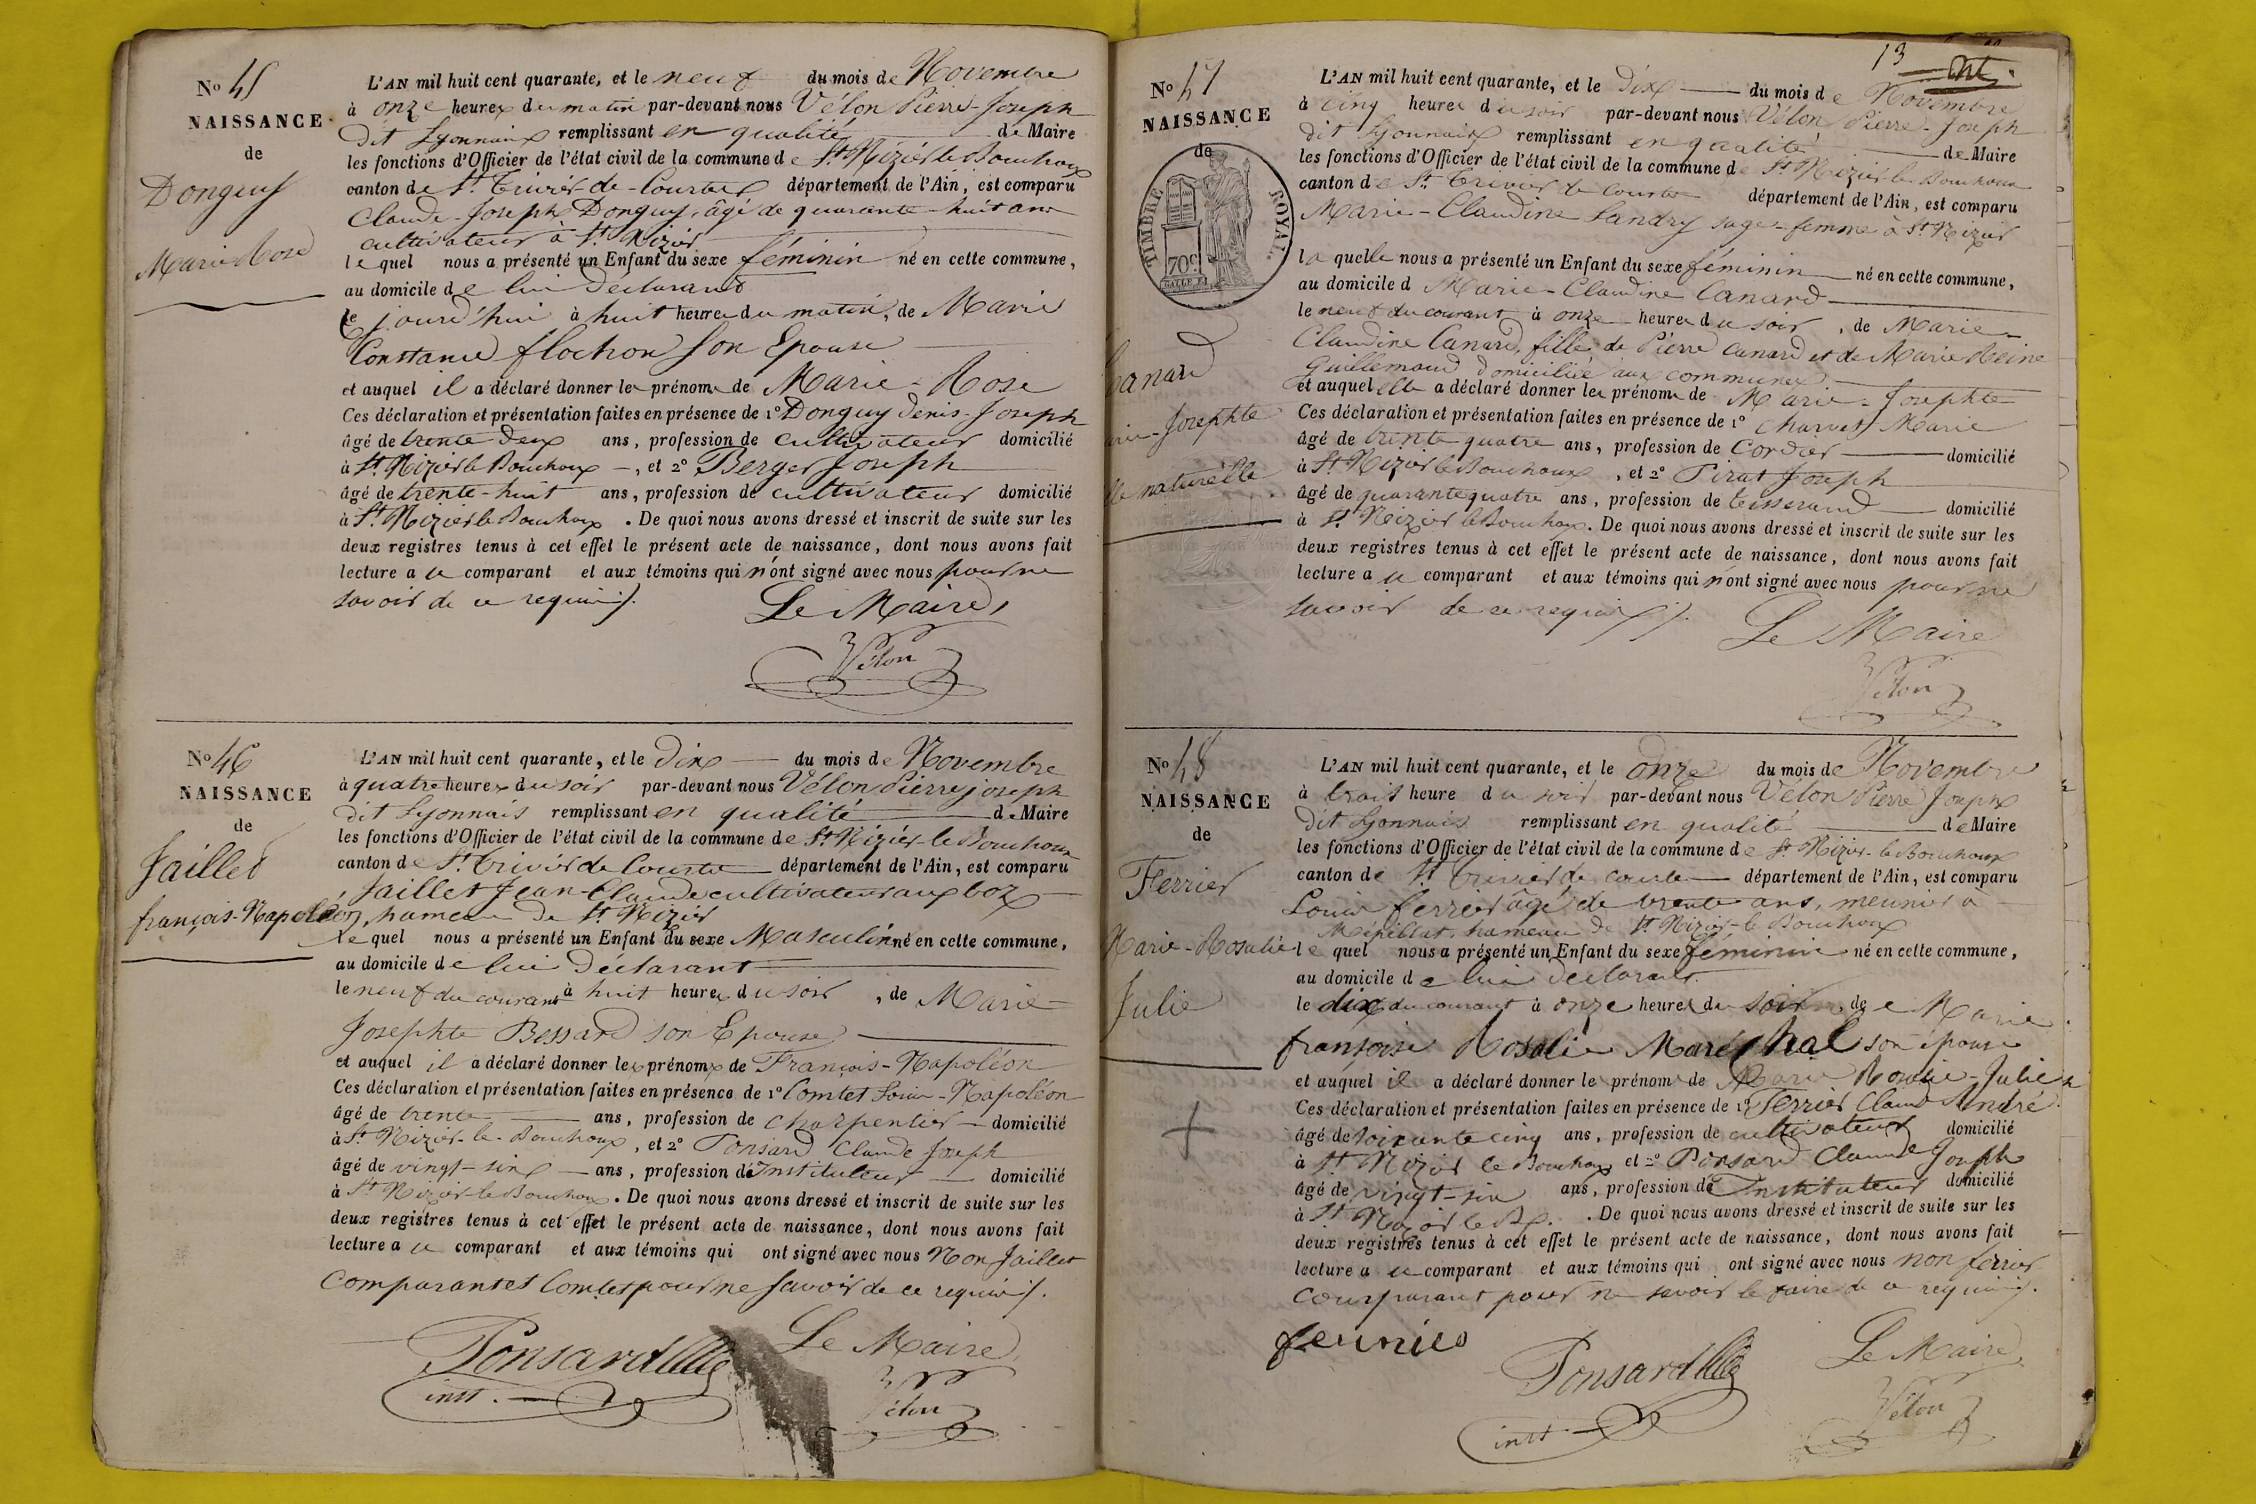 No 45
NAISSANCE
de
Donguy
Marie Rose
L'AN mil huit cent quarante, et le neuf du mois de Novembre
à onze heures du matin par-devant nous Vélon Pierre-Joseph
dit Lyonnais remplissant en qualité de Maire
les fonctions d'Officier de l'état civil de la commune de St Nizier le Bouchoux
canton de St Trivier-de-Courtes département de l'Ain, est comparu
Claude-Joseph Donguy, âgé de quarante-huit ans
cultivateur à St Nizier
lequel nous a présenté un Enfant du sexe féminin né en cette commune,
au domicile de lui déclarant
le jourd'hui à huit heures du matin, de Marie
Constance flochon son Epouse
et auquel il a déclaré donner les prénoms de Marie-Rose
Ces déclaration et présentation faites en présence de 1º Donguy Denis-Joseph
âgé de trente deux ans, profession de cultivateur domicilié
à St Nizier le Bouchoux, et 2º Berger Joseph
âgé de trente-huit ans, profession de cultivateur domicilié
à St Nizier le Bouchoux. De quoi nous avons dressé et inscrit de suite sur les
deux registres tenus à cet effet le présent acte de naissance, dont nous avons fait
lecture a ce comparant et aux témoins qui n'ont signé avec nous pour ne
savoir de ce requis /.
Le Maire,
Vélon
No 46
NAISSANCE
de
Jaillet
françois-Napoléon
L'AN mil huit cent quarante, et le Dix du mois de Novembre
à quatre heures du soir par-devant nous Vélon Pierre joseph
dit Lyonnais remplissant en qualité de Maire
les fonctions d'Officier de l'état civil de la commune de St Nizier-le-Bouchoux
canton de St Trivier de Courtes département de l'Ain, est comparu
Jaillet Jean-Claude cultivateur aux boz
hameau de St Nizier
lequel nous a présenté un Enfant du sexe Masculin né en cette commune,
au domicile de lui Déclarant
le neuf du courant à huit heures du soir, de Marie
Josephte Bessard son Epouse
et auquel il a déclaré donner les prénoms de François-Napoléon
Ces déclaration et présentation faites en présence de 1º Comtet Louis-Napoléon
âgé de trente ans, profession de charpentier domicilié
à St Nizier-le-Bouchoux, et 2º Ponsard Claude Joseph
âgé de vingt-six ans, profession de Instituteur domicilié
à St Nizier-le-Bouchoux. De quoi nous avons dressé et inscrit de suite sur les
deux registres tenus à cet effet le présent acte de naissance, dont nous avons fait
lecture a ce comparant et aux témoins qui ont signé avec nous Non Jaillet
comparant et Comtet pour ne savoir de ce requis /.
Ponsard
inst.
Le Maire
Vélon
13
No 47
NAISSANCE
de
TIMBRE ROYAL
70c
Canard
Marie-Josephte
fille naturelle
L'AN mil huit cent quarante, et le dix du mois de Novembre
à cinq heures du soir par-devant nous Vélon Pierre-Joseph
dit Lyonnais remplissant en qualité de Maire
les fonctions d'Officier de l'état civil de la commune de St Nizier le Bouchoux
canton de St Trivier de Courtes département de l'Ain, est comparu
Marie-Claudine Landry sage-femme à St Nizier
laquelle nous a présenté un Enfant du sexe féminin né en cette commune,
au domicile d Marie-Claudine Canard
le neuf du courant à onze heures du soir, de Marie
Claudine Canard, fille de Pierre Canard et de Marie Reine
Guillemaud domiciliée aux communes
et auquel elle a déclaré donner les prénoms de Marie-Josephte
Ces déclaration et présentation faites en présence de 1º Charvet Marie
âgé de trente quatre ans, profession de Cordier domicilié
à St Nizier le Bouchoux, et 2º Pirat Joseph
âgé de quarante quatre ans, profession de tisserand domicilié
à St Nizier le Bouchoux. De quoi nous avons dressé et inscrit de suite sur les
deux registres tenus à cet effet le présent acte de naissance, dont nous avons fait
lecture a ce comparant et aux témoins qui n'ont signé avec nous pour ne
savoir de ce requis /.
Le Maire
Vélon
No 48
NAISSANCE
de
Ferrier
Marie-Rosalie
Julie
L'AN mil huit cent quarante, et le onze du mois de Novembre
à trois heure du soir par-devant nous Vélon Pierre Joseph
dit Lyonnais remplissant en qualité de Maire
les fonctions d'Officier de l'état civil de la commune de St Nizier-le-Bouchoux
canton de St Trivier de courtes département de l'Ain, est comparu
Louis ferrier âgé de trente ans, meunier à
Mépillat, hameau de St Nizier-le-Bouchoux
lequel nous a présenté un Enfant du sexe féminin né en cette commune,
au domicile de lui déclarant.
le dix du courant à onze heures du soir, de Marie
françoise Rosalie Maréchal son épouse
et auquel il a déclaré donner le prénoms de Marie Rosalie-Julie
Ces déclaration et présentation faites en présence de 1º Ferrier Claude André
âgé de soixante cinq ans, profession de cultivateur domicilié
à St Nizier le Bouchoux et 2º Ponsard Claude Joseph
âgé de vingt-six ans, profession de Instituteur domicilié
à St Nizier le Bx. De quoi nous avons dressé et inscrit de suite sur les
deux registres tenus à cet effet le présent acte de naissance, dont nous avons fait
lecture a ce comparant et aux témoins qui ont signé avec nous non ferrier
comparant pour ne savoir le faire de ce requis /.
Ponsard
inst.
Le Maire
Vélon